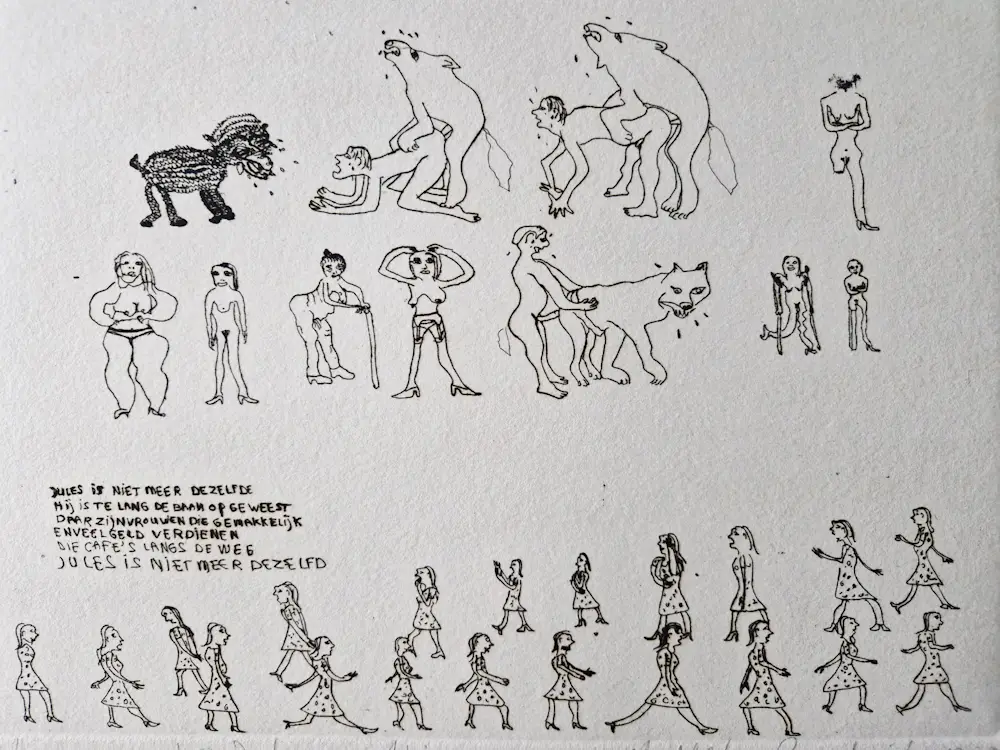 JULES IS NIET MEER DEZELFDE
HIJ IS TE LANG DE BAAN OP GEWEEST
DAAR ZIJN VROUWEN DIE GEMAKKELIJK
EN VEEL GELD VERDIENEN
DIE CAFE'S LANGS DE WEG
JULES IS NIET MEER DEZELFD